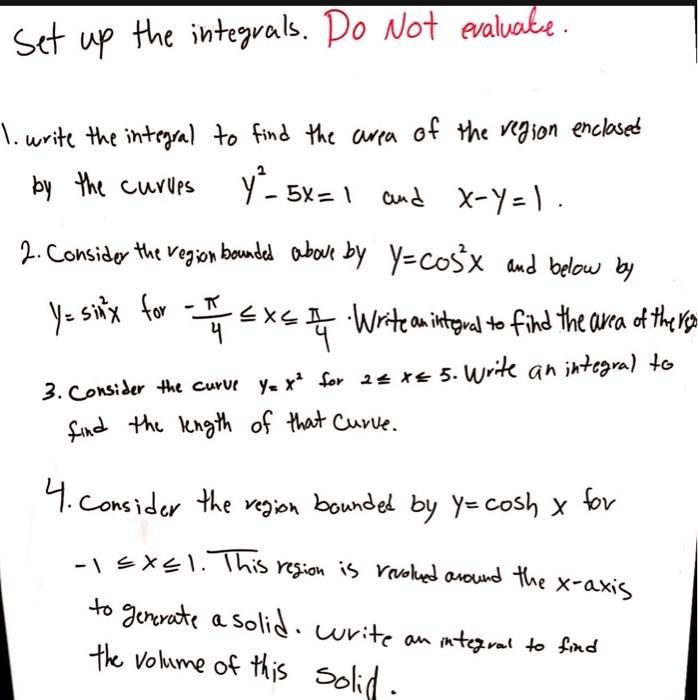 Set up the integrals. Do Not evaluate.
1. write the integral to find the area of the region enclosed
by the curves y² - 5x = 1 and x-y=1.
2. Consider the region bounded above by y=cos²x and below by
y= sin²x for -π/4 ≤ x ≤ π/4. Write an integral to find the area of the
3. Consider the curve y= x² for 2 ≤ x ≤ 5. Write an integral to
find the length of that curve.
4. Consider the region bounded by y= cosh x for
-1 ≤ x ≤ 1. This region is revolved around the x-axis
to generate a solid. write an integral to find
the volume of this solid.